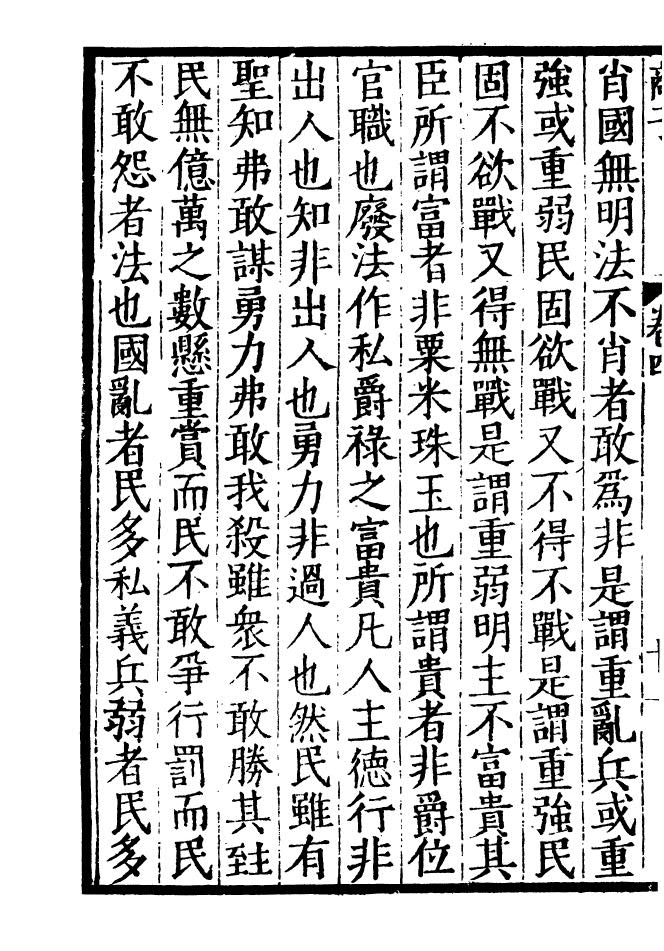 卷四
肖國無明法不肖者敢爲非是謂重亂兵或重
強或重弱民固欲戰又不得不戰是謂重強民
固不欲戰又得無戰是謂重弱明主不富貴其
臣所謂富者非粟米珠玉也所謂貴者非爵位
官職也廢法作私爵祿之富貴凡人主德行非
出人也知非出人也勇力非過人也然民雖有
聖知弗敢謀勇力弗敢我殺雖衆不敢勝其主
民無億萬之數懸重賞而民不敢爭行罰而民
不敢怨者法也國亂者民多私義兵弱者民多